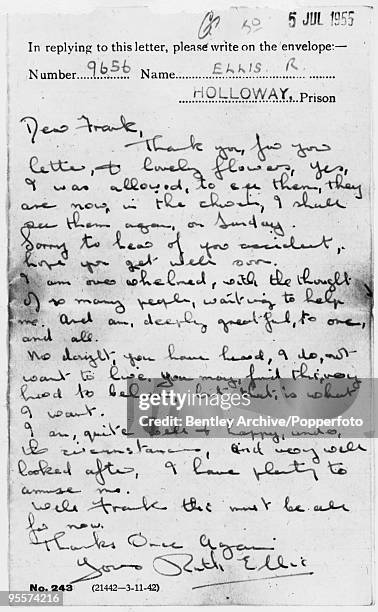 5 JUL 1955
In replying to this letter, please write on the envelope:—
Number 9656 Name ELLIS. R.
HOLLOWAY, Prison
Dear Frank,
Thank you, for you
letter, + lovely flowers, Yes,
I was allowed, to see them, they
are now, in the church, I shall
see them again, on Sunday.
Sorry to hear of you accident,
hope you get well soon.
I am over whelmed, with the thought
of so many people, waiting to help
me. And am, deeply greatful, to one,
and all.
No dought, you have head, I do, not
want to live. You may, find this, very
hard to believe, but that, is what
I want.
I am, quite well + happy, under,
the circumstances, And very well
looked after, I have plenty to
amuse me.
Well Frank this must be all
for now.
Thanks Once Again.
Yours Ruth Ellis
No. 243 (21442—3-11-42)
gettyimages
Bentley Archive/Popperfoto
50974536